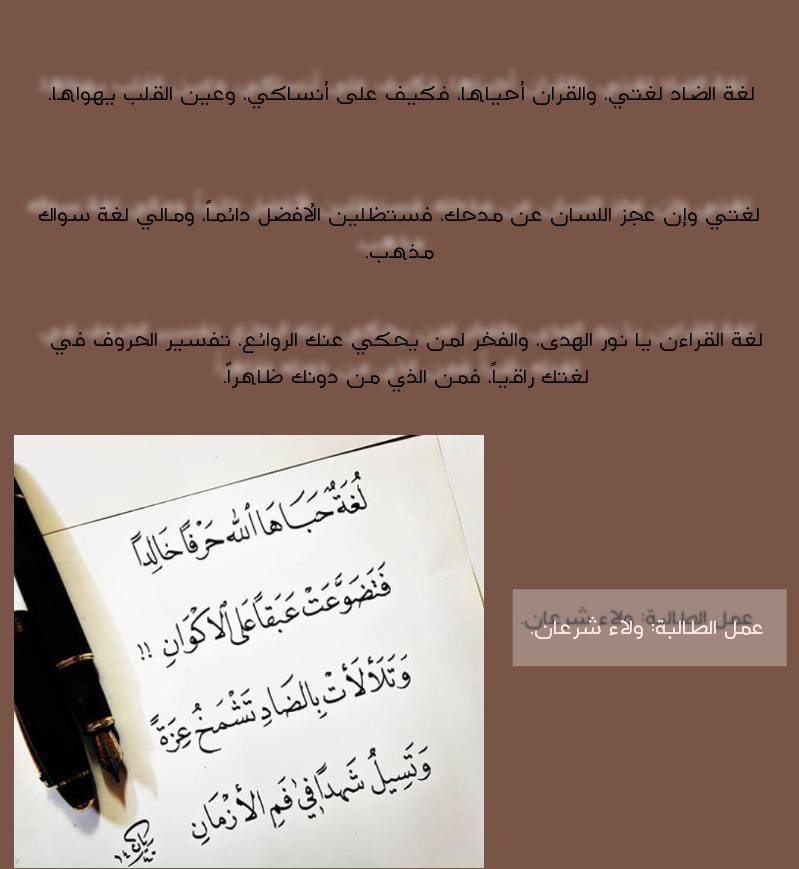 لغة الضاد لغتي، والقران أحياها، فكيف على أنساكي، وعين القلب يهواها.
لغتي وإن عجز اللسان عن مدحك، فستظلين الأفضل دائماً، ومالي لغة سواك
مذهب.
لغة القراءن يا نور الهدى، والفخر لمن يحكي عنك الروائع، تفسير الحروف في
لغتك راقياً، فمن الذي من دونك ظاهراً.
لُغَةٌ حَبَاهَا اللّٰه حَرْفًا خَالِداً
فَتَضَوَّعَتْ عَبَقاً عَلَى الْاكْوَانِ !!
وَتَلَأْلَأَتْ بِالضَادِ تَشْمَخُ عِزَةً
وَتَسِيلُ شَهداً فِي فَمِ الأَزْمَانِ
عمل الطالبة: ولاء شرعان.